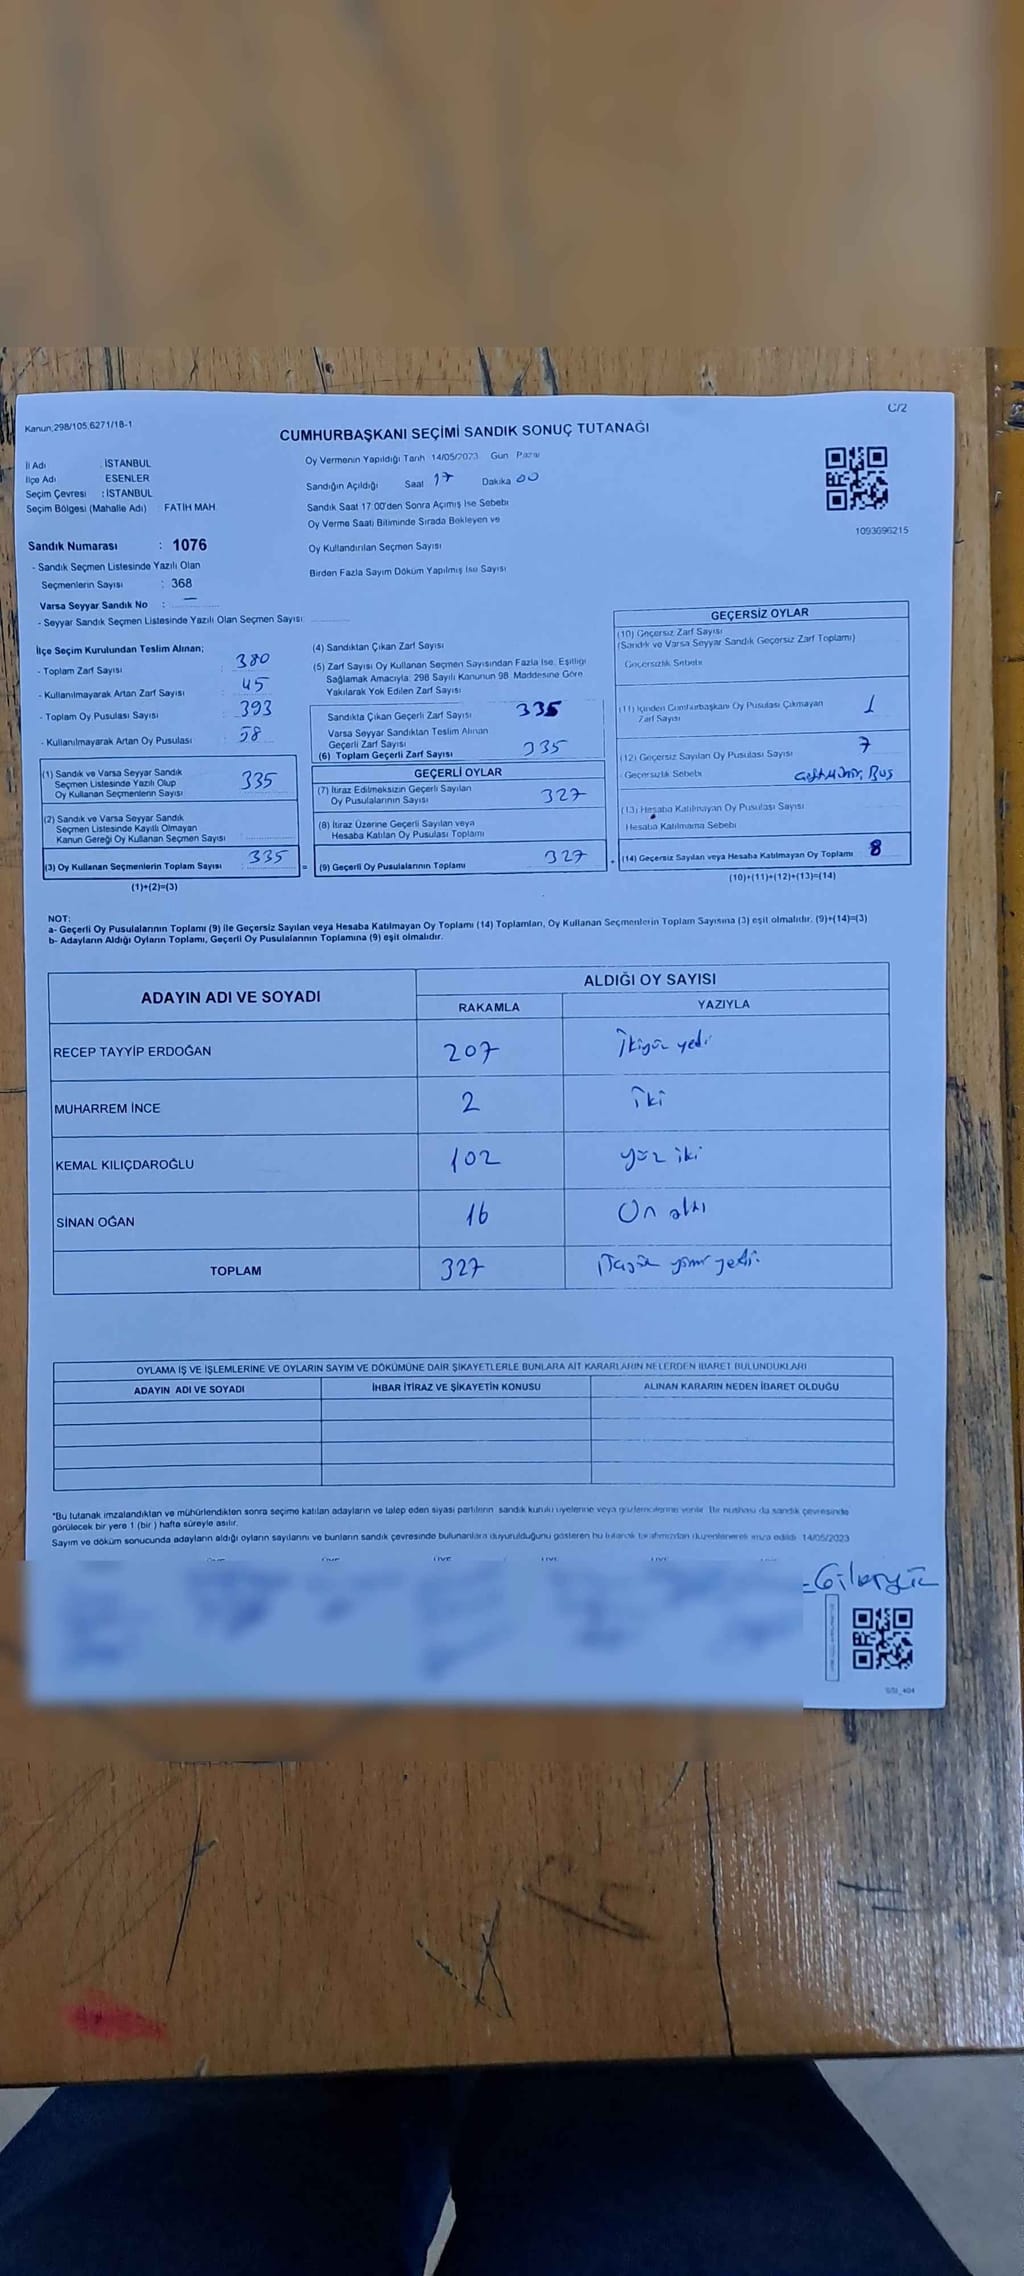 C/2
Kanun,298/105,6271/18-1
CUMHURBAŞKANI SEÇİMİ SANDIK SONUÇ TUTANAĞI
İl Adı : İSTANBUL
İlçe Adı ESENLER
Seçim Çevresi : İSTANBUL
Seçim Bölgesi (Mahalle Adı) FATİH MAH.
Oy Vermenin Yapıldığı Tarih 14/05/2023 Gün Pazar
Sandığın Açıldığı Saat 17 Dakika 00
Sandık Saat 17:00'den Sonra Açımış İse Sebebi
Oy Verme Saati Bitiminde Sırada Bekleyen ve
Oy Kullandırılan Seçmen Sayısı
Birden Fazla Sayım Döküm Yapılmış İse Sayısı
1093696215
Sandık Numarası : 1076
- Sandık Seçmen Listesinde Yazılı Olan
Seçmenlerin Sayısı : 368
Varsa Seyyar Sandık No : —
- Seyyar Sandık Seçmen Listesinde Yazılı Olan Seçmen Sayısı
İlçe Seçim Kurulundan Teslim Alınan;
- Toplam Zarf Sayısı : 380
- Kullanılmayarak Artan Zarf Sayısı : 45
- Toplam Oy Pusulası Sayısı : 393
- Kullanılmayarak Artan Oy Pusulası : 58
(1) Sandık ve Varsa Seyyar Sandık
Seçmen Listesinde Yazılı Olup
Oy Kullanan Seçmenlerin Sayısı 335
(2) Sandık ve Varsa Seyyar Sandık
Seçmen Listesinde Kayıtlı Olmayan
Kanun Gereği Oy Kullanan Seçmen Sayısı
(3) Oy Kullanan Seçmenlerin Toplam Sayısı 335 =
(1)+(2)=(3)
(4) Sandıktan Çıkan Zarf Sayısı
(5) Zarf Sayısı Oy Kullanan Seçmen Sayısından Fazla İse, Eşitliği
Sağlamak Amacıyla; 298 Sayılı Kanunun 98. Maddesine Göre
Yakılarak Yok Edilen Zarf Sayısı
Sandıkta Çıkan Geçerli Zarf Sayısı 335
Varsa Seyyar Sandıktan Teslim Alınan
Geçerli Zarf Sayısı
(6) Toplam Geçerli Zarf Sayısı 335
GEÇERLİ OYLAR
(7) İtiraz Edilmeksizin Geçerli Sayılan
Oy Pusulalarının Sayısı 327
(8) İtiraz Üzerine Geçerli Sayılan veya
Hesaba Katılan Oy Pusulası Toplamı
(9) Geçerli Oy Pusulalarının Toplamı 327 +
GEÇERSİZ OYLAR
(10) Geçersiz Zarf Sayısı
(Sandık ve Varsa Seyyar Sandık Geçersiz Zarf Toplamı)
Geçersizlik Sebebi
(11) İçinden Cumhurbaşkanı Oy Pusulası Çıkmayan
Zarf Sayısı 1
(12) Geçersiz Sayılan Oy Pusulası Sayısı 7
Geçersizlik Sebebi Çift Mühür, Boş
(13) Hesaba Katılmayan Oy Pusulası Sayısı
Hesaba Katılmama Sebebi
(14) Geçersiz Sayılan veya Hesaba Katılmayan Oy Toplamı 8
(10)+(11)+(12)+(13)=(14)
NOT:
a- Geçerli Oy Pusulalarının Toplamı (9) ile Geçersiz Sayılan veya Hesaba Katılmayan Oy Toplamı (14) Toplamları, Oy Kullanan Seçmenlerin Toplam Sayısına (3) eşit olmalıdır. (9)+(14)=(3)
b- Adayların Aldığı Oyların Toplamı, Geçerli Oy Pusulalarının Toplamına (9) eşit olmalıdır.
ADAYIN ADI VE SOYADI ALDIĞI OY SAYISI
RAKAMLA YAZIYLA
RECEP TAYYİP ERDOĞAN 207 İkiyüz yedi
MUHARREM İNCE 2 İki
KEMAL KILIÇDAROĞLU 102 yüz iki
SİNAN OĞAN 16 On altı
TOPLAM 327 Üçyüz yirmi yedi
OYLAMA İŞ VE İŞLEMLERİNE VE OYLARIN SAYIM VE DÖKÜMÜNE DAİR ŞİKAYETLERLE BUNLARA AİT KARARLARIN NELERDEN İBARET BULUNDUKLARI
ADAYIN ADI VE SOYADI İHBAR İTİRAZ VE ŞİKAYETİN KONUSU ALINAN KARARIN NEDEN İBARET OLDUĞU
"Bu tutanak imzalandıktan ve mühürlendikten sonra seçime katılan adayların ve talep eden siyasi partilerin sandık kurulu üyelerine veya gözlemcilerine verilir. Bir nushası da sandık çevresinde
görülecek bir yere 1 (bir) hafta süreyle asılır.
Sayım ve döküm sonucunda adayların aldığı oyların sayılarını ve bunların sandık çevresinde bulunanlara duyurulduğunu gösteren bu tutanak tarafımızdan düzenlenerek imza edildi. 14/05/2023